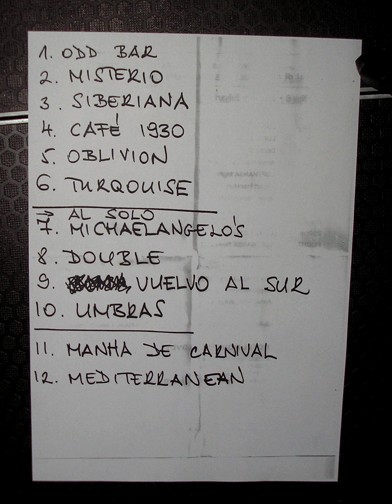 1. ODD BAR
2. MISTERIO
3. SIBERIANA
4. CAFÉ 1930
5. OBLIVION
6. TURQOUISE
→ AL SOLO
7. MICHAELANGELO'S
8. DOUBLE
9. VUELVO AL SUR
10. UMBRAS
11. MANHA DE CARNIVAL
12. MEDITERRANEAN